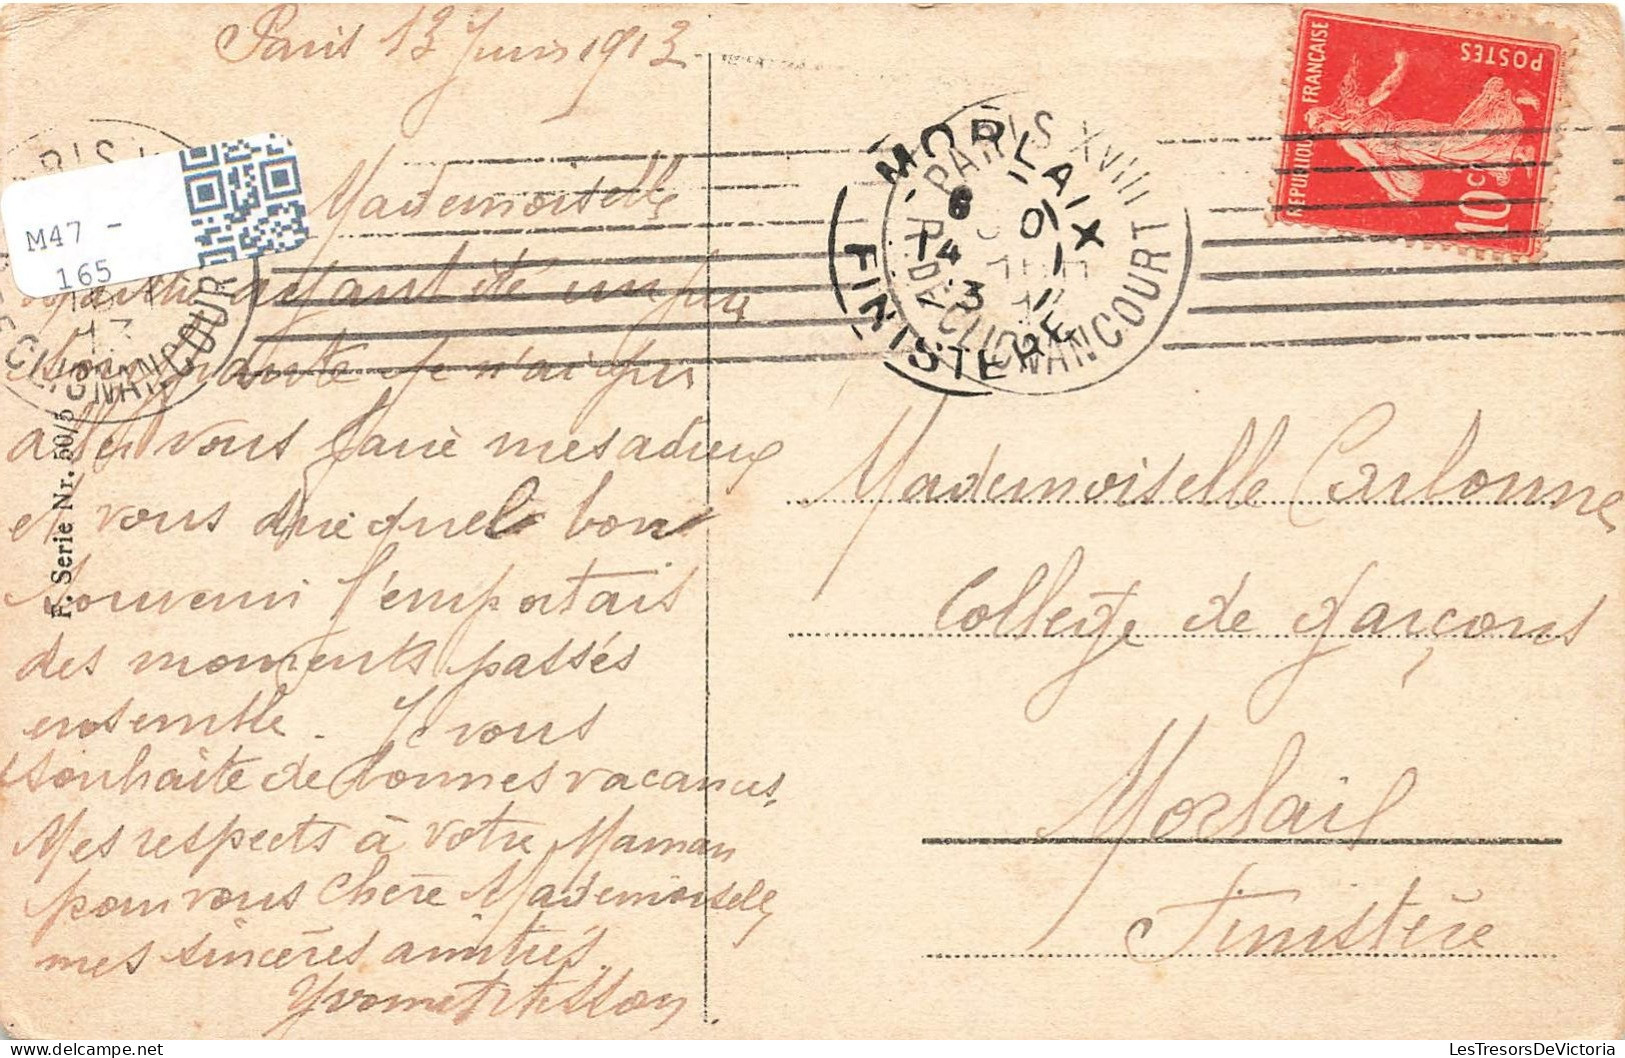 Paris 13 Juin 1913
Mademoiselle
ayant été un peu
je n'ai pu
aller vous faire mes adieux
et vous dire quel bon
souvenir j'emportais
des moments passés
ensemble. Je vous
souhaite de bonnes vacances.
Mes respects à votre Maman
pour vous chère Mademoiselle
mes sincères amitiés.
Yvonne
F. Serie Nr. 50/5
M47 -
165
PARIS
R. DE CLIGNANCOURT
13
PARIS XVIII
R. DE CLIGNANCOURT
MORLAIX
FINISTERE
REPUBLIQUE FRANÇAISE
POSTES
10 C
Mademoiselle
Collège de garçons
Morlaix
Finistère
LesTresorsDeVictoria